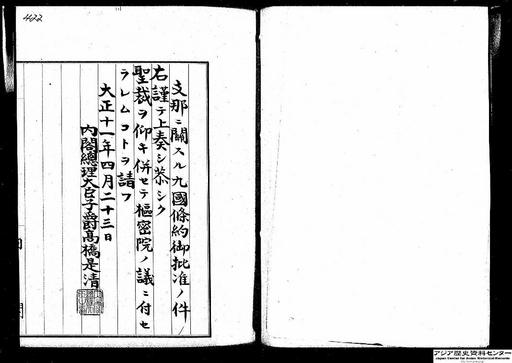 422
支那ニ關スル九國條約御批准ノ件
右謹テ上奏シ恭シク
聖裁ヲ仰キ併セテ樞密院ノ議ニ付セ
ラレムコトヲ請フ
大正十一年四月二十三日
內閣總理大臣子爵高橋是清
アジア歴史資料センター
Japan Center for Asian Historical Records